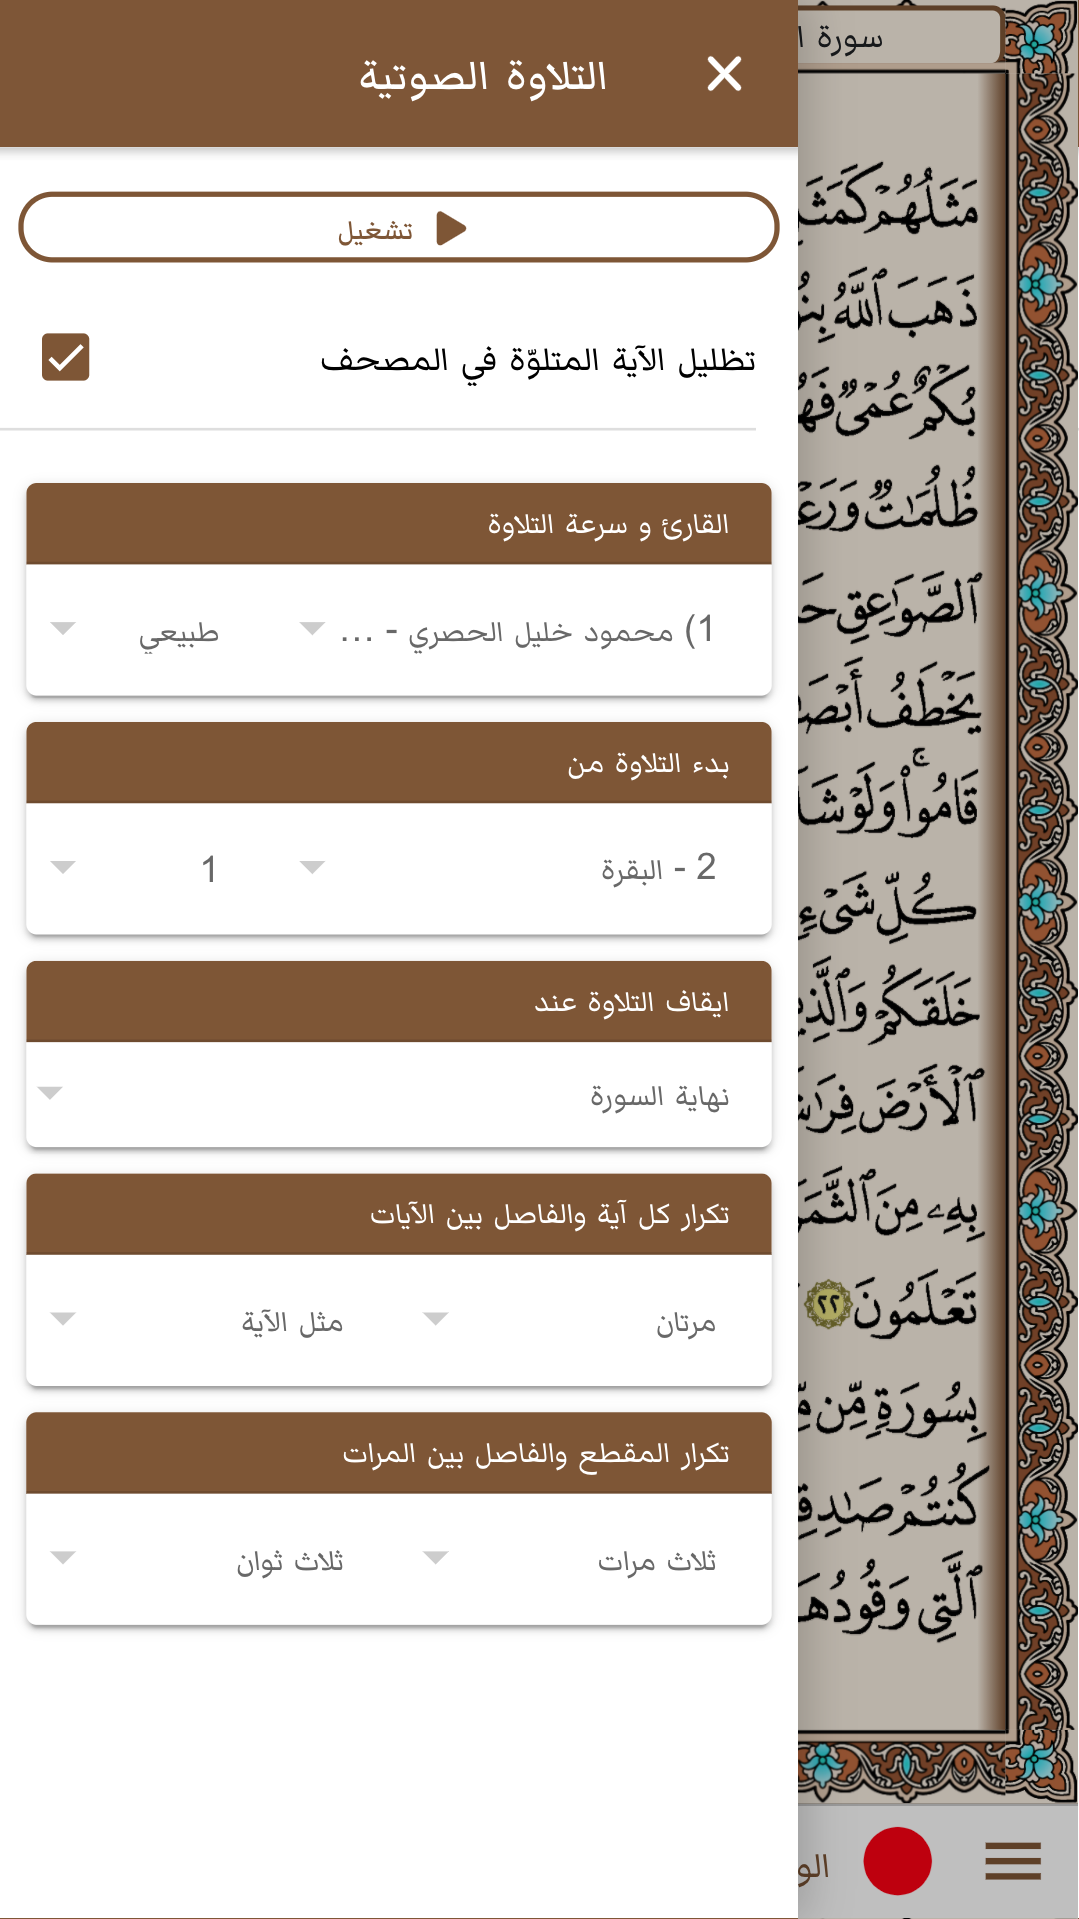 التلاوة الصوتية
تشغيل
تظليل الآية المتلوّة في المصحف
القارئ و سرعة التلاوة
1) محمود خليل الحصري - ...
طبيعي
بدء التلاوة من
2 - البقرة
1
ايقاف التلاوة عند
نهاية السورة
تكرار كل آية والفاصل بين الآيات
مرتان
مثل الآية
تكرار المقطع والفاصل بين المرات
ثلاث مرات
ثلاث ثوان
سورة
مَثَلُهُمْ
ذَهَبَ ٱللَّهُ
بُكْمٌ عُمْىٌ
ظُلُمَٰتٌ
ٱلصَّوَٰعِقِ
يَخْطَفُ
قَامُوا۟ ۚ وَلَوْ
كُلِّ شَىْءٍ
خَلَقَكُمْ
ٱلْأَرْضَ
بِهِۦ مِنَ
تَعْلَمُونَ ٢٢
بِسُورَةٍ مِّن
كُنتُمْ
ٱلَّتِى